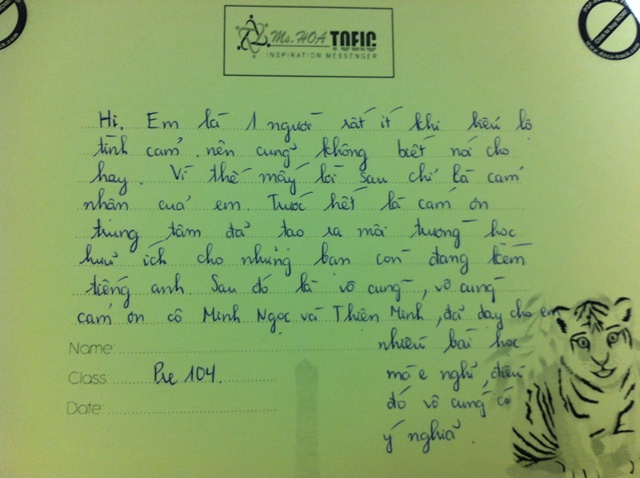 Ms. HOA TOEIC
INSPIRATION MESSENGER
Hi, Em là 1 người rất ít khi biểu lộ
tình cảm nên cũng không biết nói cho
hay. Vì thế mấy lời sau chỉ là cảm
nhận của em. Trước hết là cảm ơn
trung tâm đã tạo ra môi trường học
hữu ích cho những bạn còn đang kém
tiếng anh. Sau đó là vô cùng, vô cùng
cảm ơn cô Minh Ngọc và Thiên Minh, đã dạy cho em
nhiều bài học
mà e nghĩ, điều
đó vô cùng có
ý nghĩa.
Name:
Class: Pre 104.
Date: